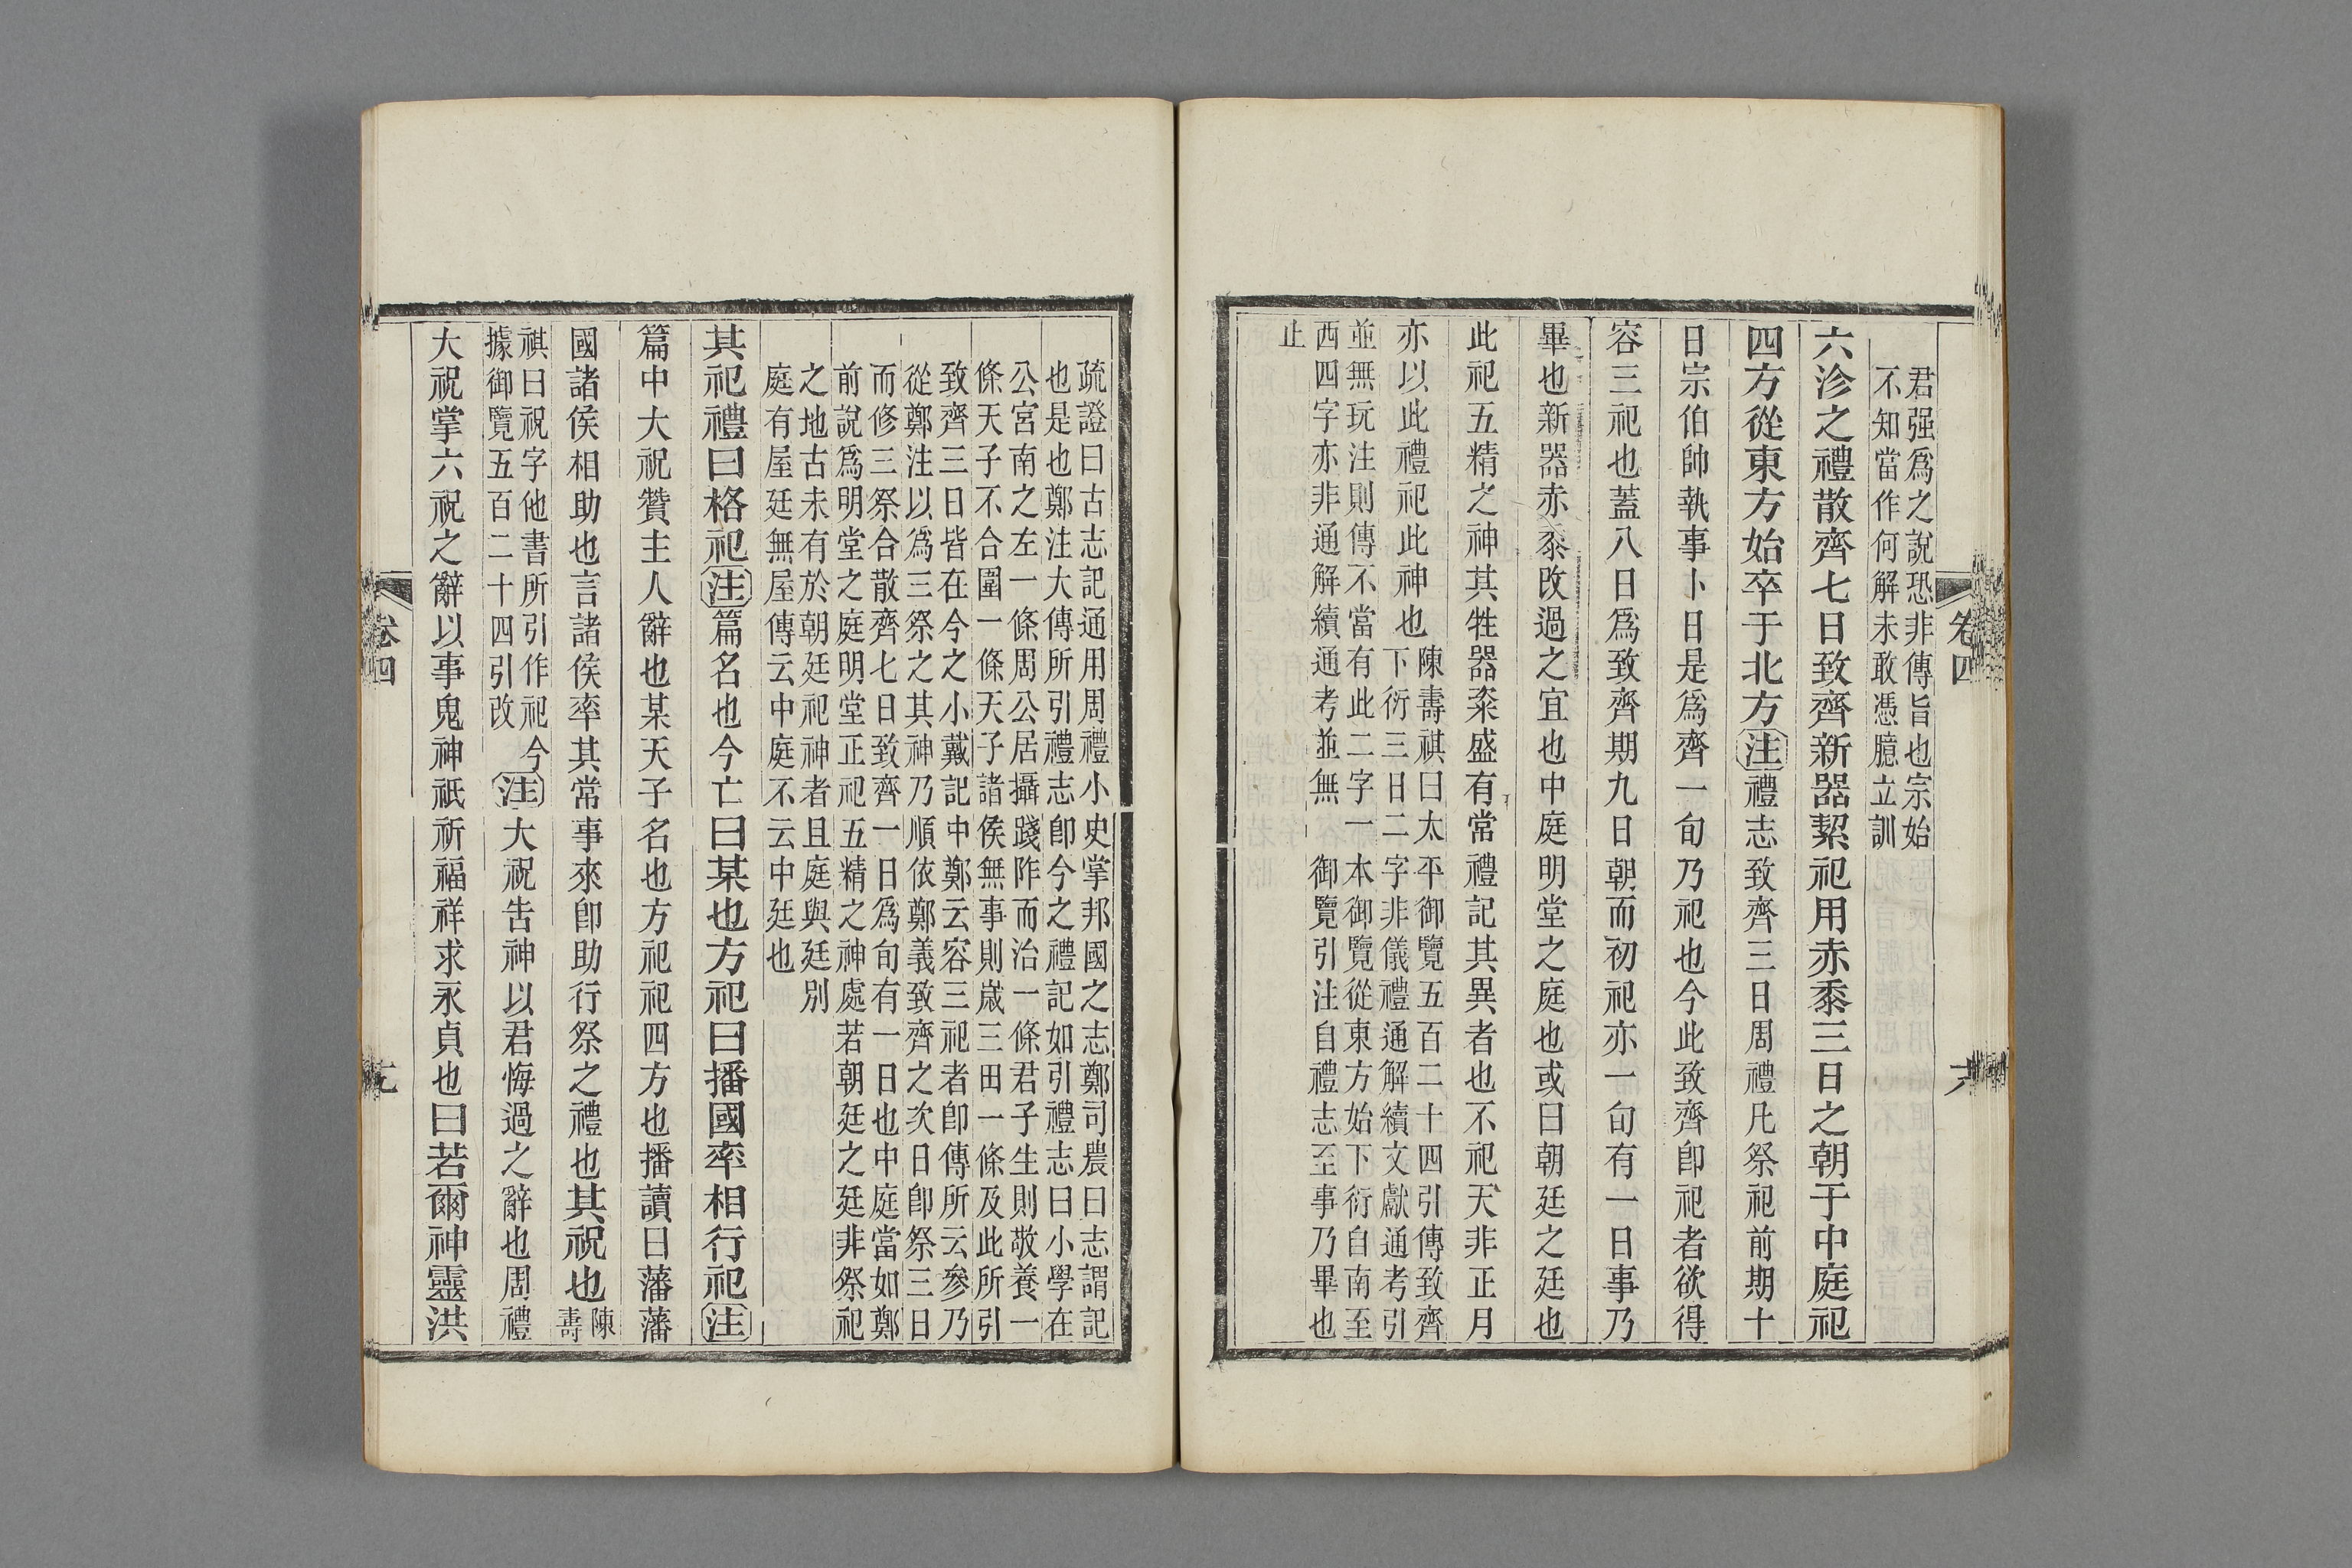 君强爲之說恐非傳旨也宗始
不知當作何解未敢憑臆立訓
六沴之禮散齊七日致齊新器絜祀用赤黍三日之朝于中庭祀
四方從東方始卒于北方注禮志致齊三日周禮凡祭祀前期十
日宗伯帥執事卜日是爲齊一旬乃祀也今此致齊卽祀者欲得
容三祀也蓋八日爲致齊期九日朝而初祀亦一旬有一日事乃
畢也新器赤黍改過之宜也中庭明堂之庭也或曰朝廷之廷也
此祀五精之神其牲器粢盛有常禮記其異者也不祀天非正月
亦以此禮祀此神也
陳壽祺曰太平御覽五百二十四引傳致齊
下衍三日二字非儀禮通解續文獻通考引
並無玩注則傳不當有此二字一本御覽從東方始下衍自南至
西四字亦非通解續通考並無 御覽引注自禮志至事乃畢也
止
卷四
疏證曰古志記通用周禮小史掌邦國之志鄭司農曰志謂記
也是也鄭注大傳所引禮志卽今之禮記如引禮志曰小學在
公宮南之左一條周公居攝踐阼而治一條君子生則敬養一
條天子不合圍一條天子諸侯無事則歲三田一條及此所引
致齊三日皆在今之小戴記中鄭云容三祀者卽傳所云參乃
從鄭注以爲三祭之其神乃順依鄭義致齊之次日卽祭三日
而修三祭合散齊七日致齊一日爲旬有一日也中庭當如鄭
前說爲明堂之庭明堂正祀五精之神處若朝廷之廷非祭祀
之地古未有於朝廷祀神者且庭與廷別
庭有屋廷無屋傳云中庭不云中廷也
其祀禮曰格祀注篇名也今亡曰某也方祀曰播國率相行祀注
篇中大祝贊主人辭也某天子名也方祀祀四方也播讀曰藩藩
國諸侯相助也言諸侯率其常事來卽助行祭之禮也其祝也
陳
壽
祺曰祝字他書所引作祀今
據御覽五百二十四引改
注大祝告神以君悔過之辭也周禮
大祝掌六祝之辭以事鬼神祇祈福祥求永貞也曰若爾神靈洪
卷四